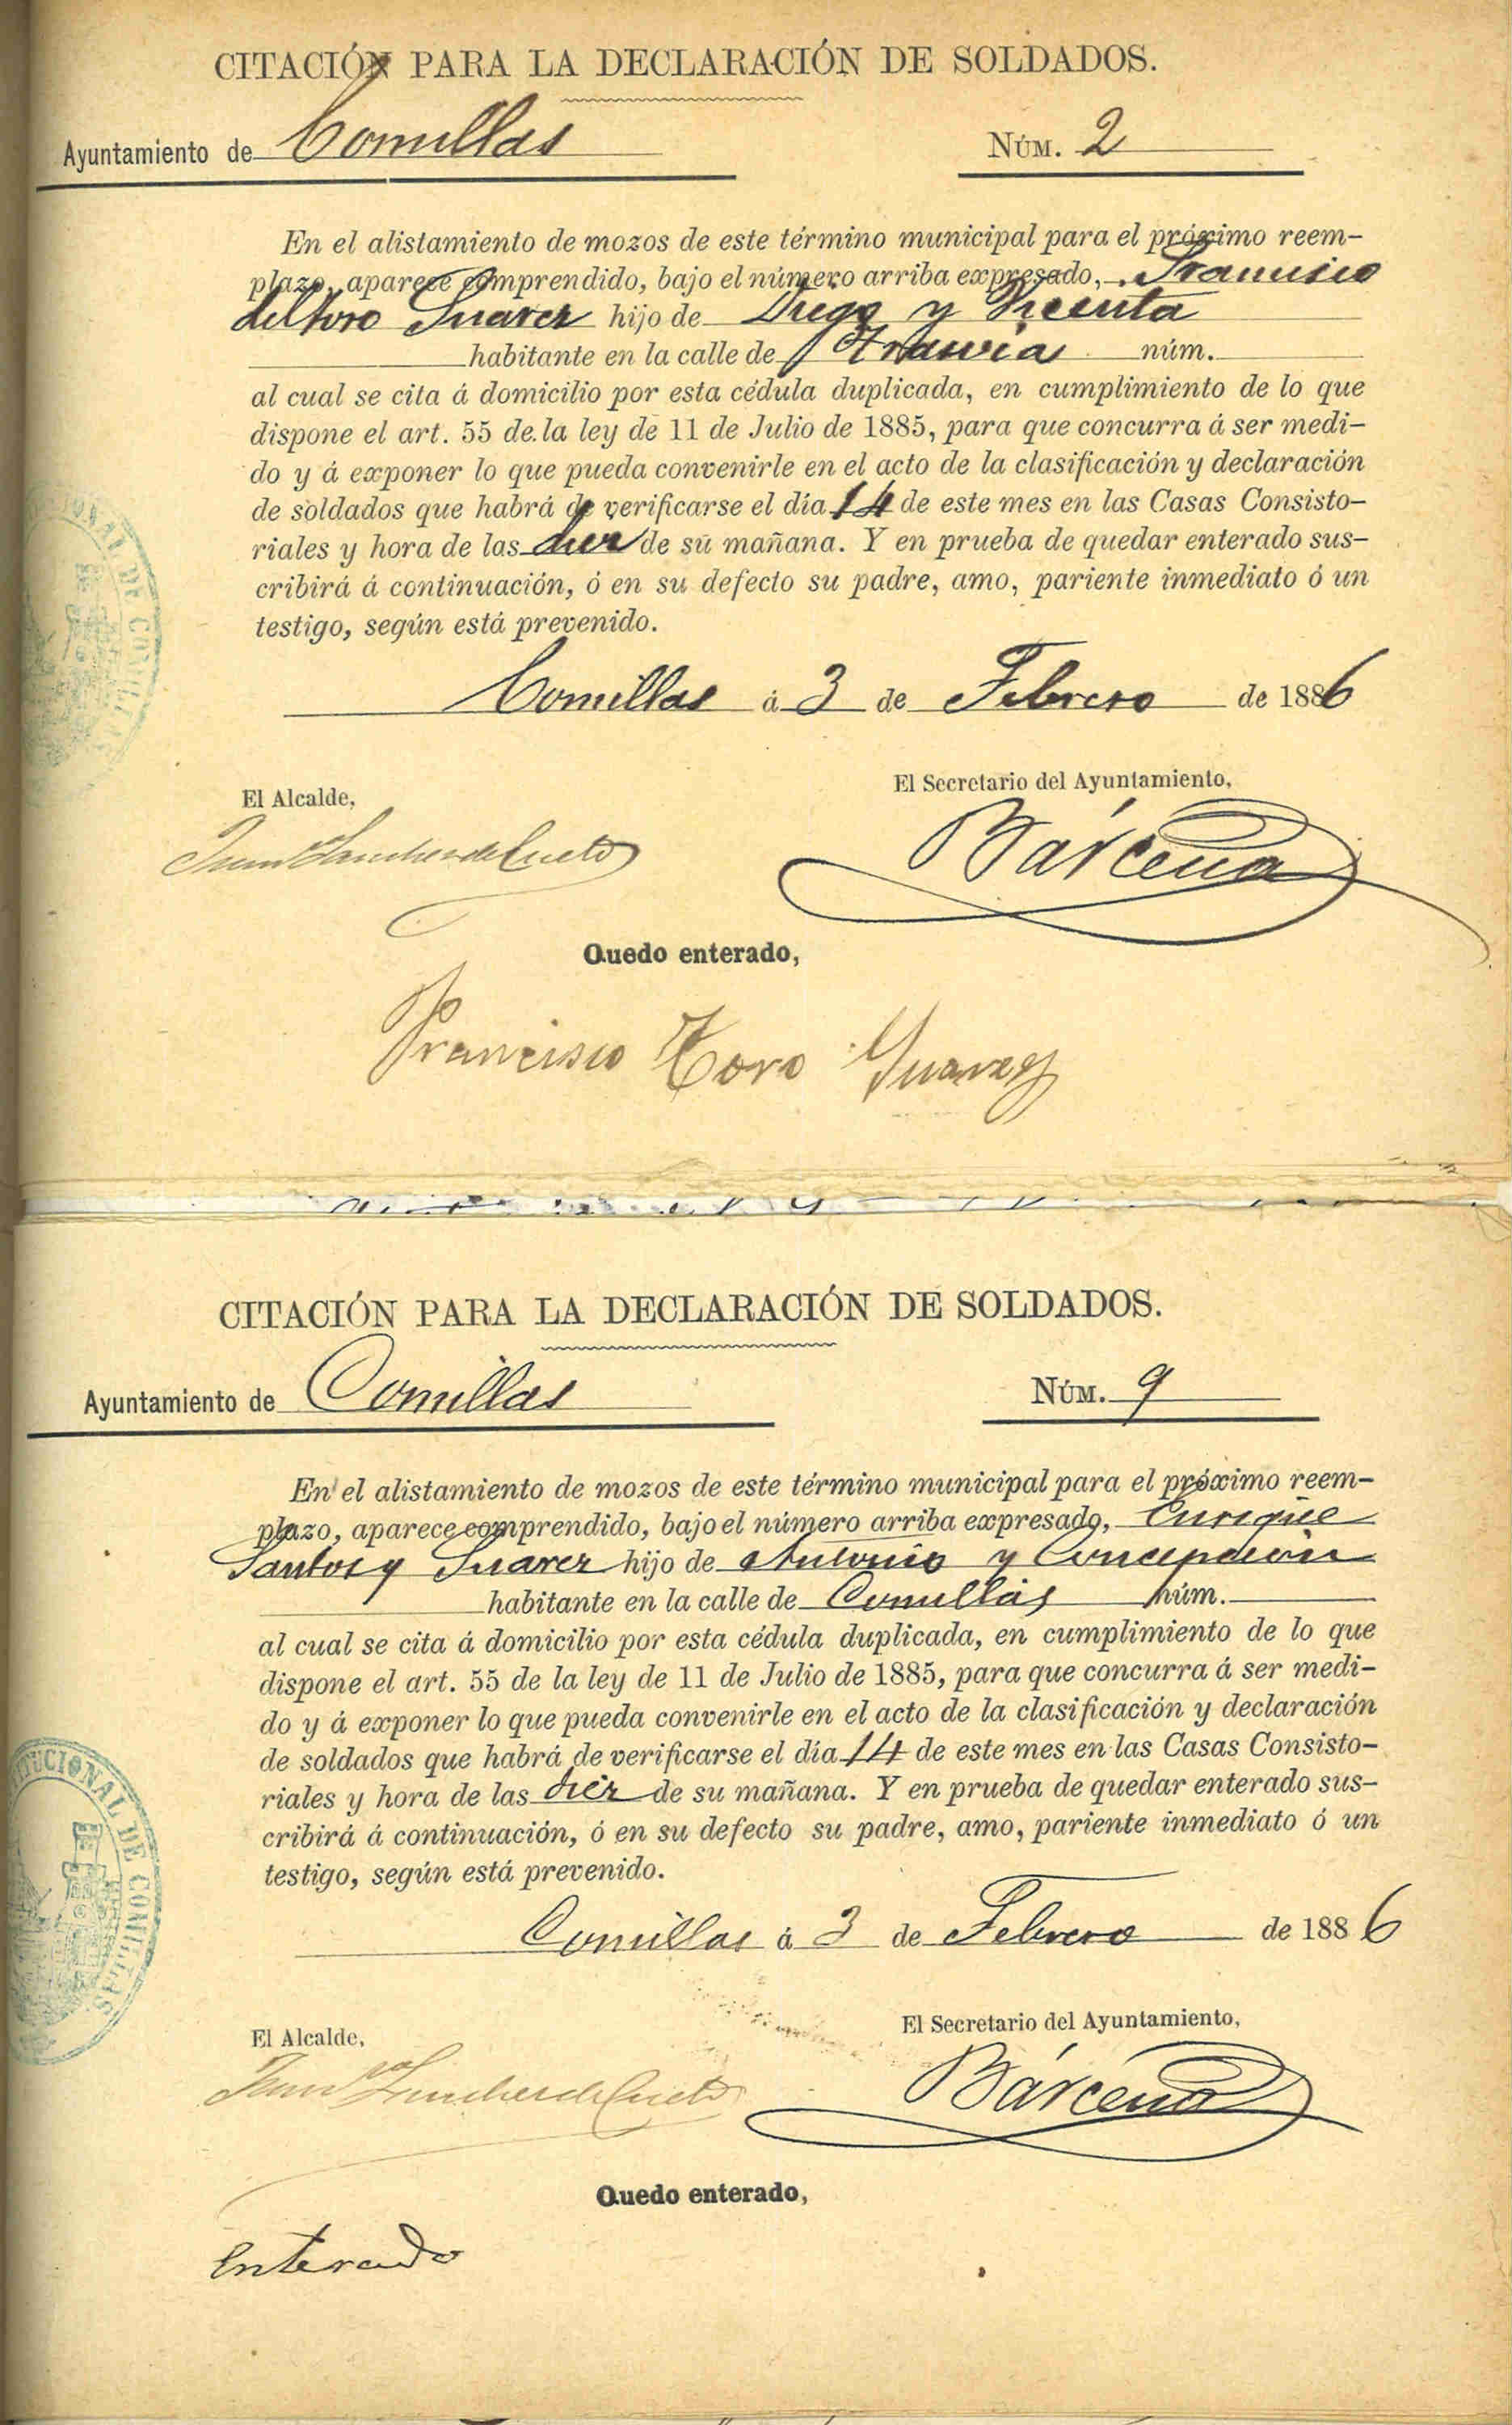 CITACIÓN PARA LA DECLARACIÓN DE SOLDADOS.
Ayuntamiento de Comillas NÚM. 2
En el alistamiento de mozos de este término municipal para el próximo reem-
plazo, aparece comprendido, bajo el número arriba expresado, Francisco
del Toro Suarez hijo de Diego y Vicenta
habitante en la calle de núm.
al cual se cita á domicilio por esta cédula duplicada, en cumplimiento de lo que
dispone el art. 55 de la ley de 11 de Julio de 1885, para que concurra á ser medi-
do y á exponer lo que pueda convenirle en el acto de la clasificación y declaración
de soldados que habrá de verificarse el día 14 de este mes en las Casas Consisto-
riales y hora de las diez de su mañana. Y en prueba de quedar enterado sus-
cribirá á continuación, ó en su defecto su padre, amo, pariente inmediato ó un
testigo, según está prevenido.
Comillas á 3 de Febrero de 1886
El Alcalde, El Secretario del Ayuntamiento,
Juan Sanchez de Cueto Bárcena
Quedo enterado,
Francisco Toro Suarez
CITACIÓN PARA LA DECLARACIÓN DE SOLDADOS.
Ayuntamiento de Comillas NÚM. 9
En el alistamiento de mozos de este término municipal para el próximo reem-
plazo, aparece comprendido, bajo el número arriba expresado, Enrique
Santos y Suarez hijo de Antonio y Concepcion
habitante en la calle de Comillas núm.
al cual se cita á domicilio por esta cédula duplicada, en cumplimiento de lo que
dispone el art. 55 de la ley de 11 de Julio de 1885, para que concurra á ser medi-
do y á exponer lo que pueda convenirle en el acto de la clasificación y declaración
de soldados que habrá de verificarse el día 14 de este mes en las Casas Consisto-
riales y hora de las diez de su mañana. Y en prueba de quedar enterado sus-
cribirá á continuación, ó en su defecto su padre, amo, pariente inmediato ó un
testigo, según está prevenido.
Comillas á 3 de Febrero de 1886
El Alcalde, El Secretario del Ayuntamiento,
Juan Sanchez de Cueto Bárcena
Quedo enterado,
Enterado
DE COMILLAS